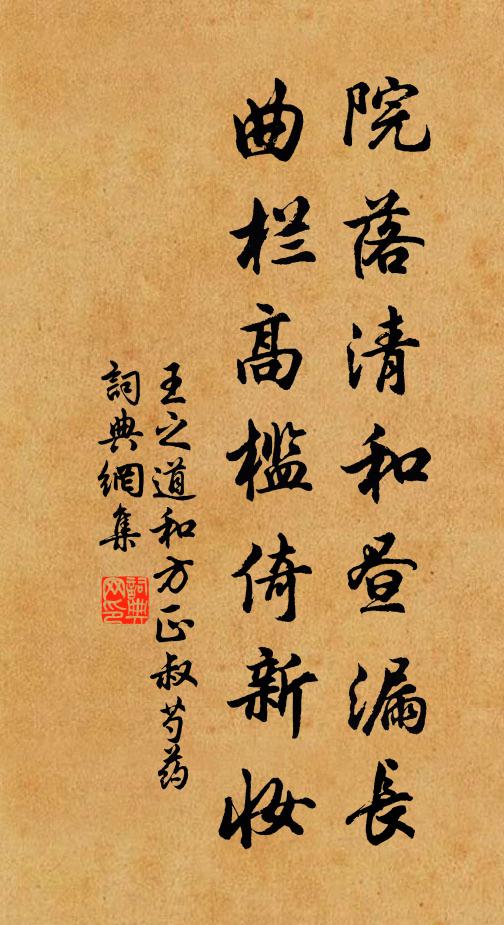 院落清和昼漏長
曲栏高槛倚新妆
王之道和方正叔芍药
詞典網集
詞典网印